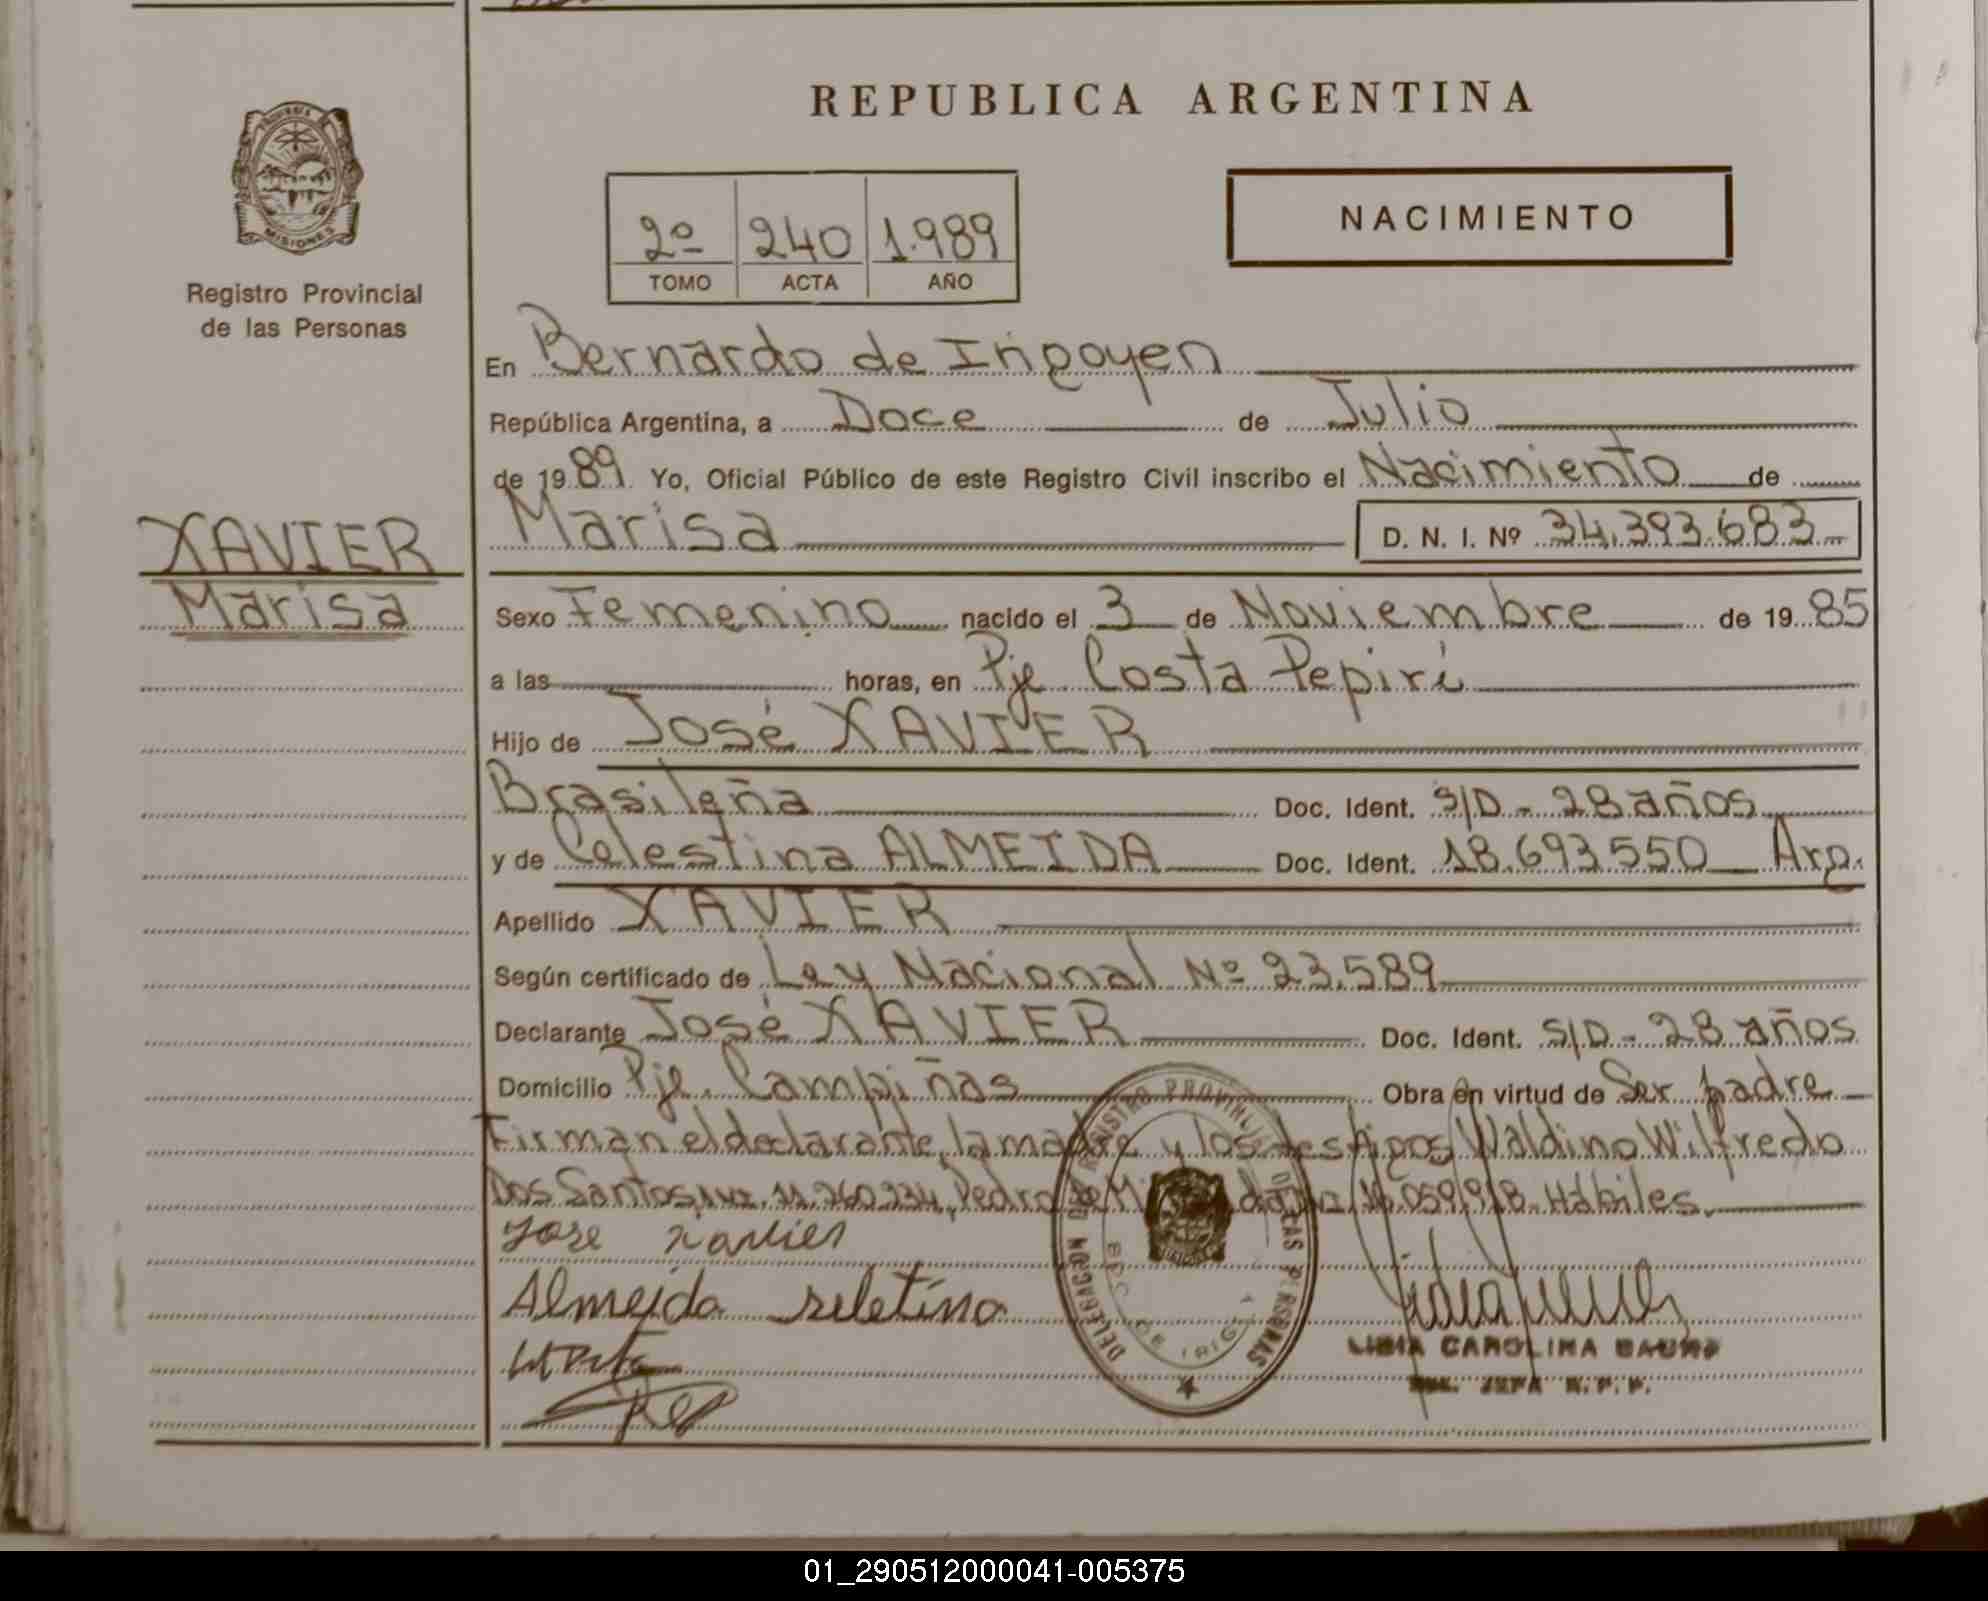 REPUBLICA ARGENTINA
PROVINCIA DE
MISIONES
Registro Provincial
de las Personas
2º 240 1.989
TOMO ACTA AÑO
NACIMIENTO
En Bernardo de Irigoyen
República Argentina, a Doce de Julio
de 1989 Yo, Oficial Público de este Registro Civil inscribo el Nacimiento de
Marisa D. N. I. Nº 34.393.683
XAVIER
Marisa
Sexo Femenino nacido el 3 de Noviembre de 1985
a las horas, en Pje Costa Pepirí
Hijo de José XAVIER
Brasileña Doc. Ident. S/D - 28 años
y de Celestina ALMEIDA Doc. Ident. 18.693.550 Arg.
Apellido XAVIER
Según certificado de Ley Nacional Nº 23.589
Declarante José XAVIER Doc. Ident. S/D - 28 años
Domicilio Pje. Campiñas Obra en virtud de Ser padre
Firman el declarante, la madre y los testigos Waldino Wilfredo
Dos Santos, 11.260.234, Pedro de Hábiles.
Jose xavier
Almeida seletina
DELEGACION DEL REGISTRO PROVINCIAL DE LAS PERSONAS
BDO. DE IRIGOYEN
LIDIA CAROLINA
JEFA R. P. P.
01_290512000041-005375